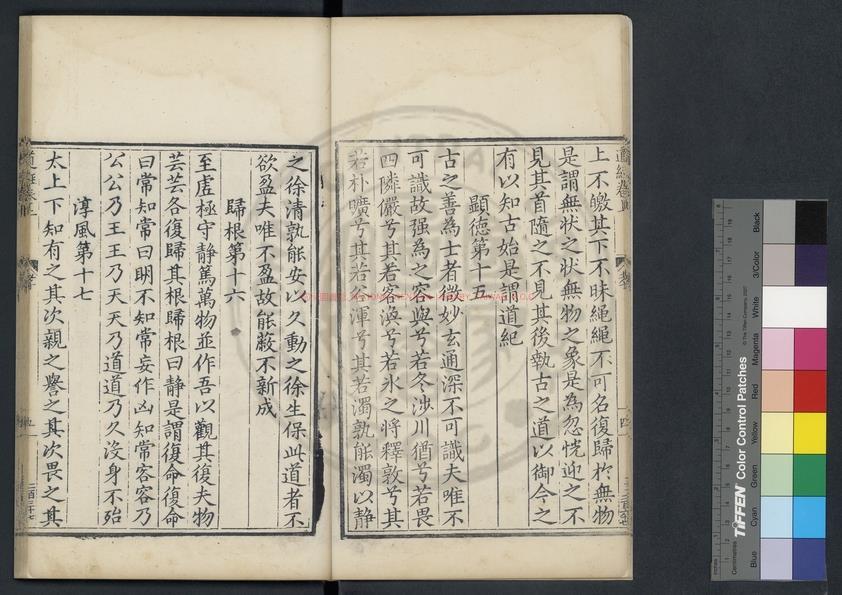 上不皦其下不昧繩繩不可名復歸於無物
是謂無狀之狀無物之象是為忽恍迎之不
見其首隨之不見其後執古之道以御今之
有以知古始是謂道紀
顯德第十五
古之善為士者微妙玄通深不可識夫唯不
可識故強為之容與兮若冬涉川猶兮若畏
四隣儼兮其若客渙兮若氷之將釋敦兮其
若朴曠兮其若谷渾兮其若濁孰能濁以静
之徐清孰能安以久動之徐生保此道者不
欲盈夫唯不盈故能蔽不新成
歸根第十六
至虛極守静篤萬物並作吾以觀其復夫物
芸芸各復歸其根歸根曰静是謂復命復命
曰常知常曰明不知常妄作凶知常容容乃
公公乃王王乃天天乃道道乃久没身不殆
淳風第十七
太上下知有之其次親之譽之其次畏之其
TIFFEN Color Control Patches
Blue
Cyan
Green
Yellow
Red
Magenta
White
3/Color
Black